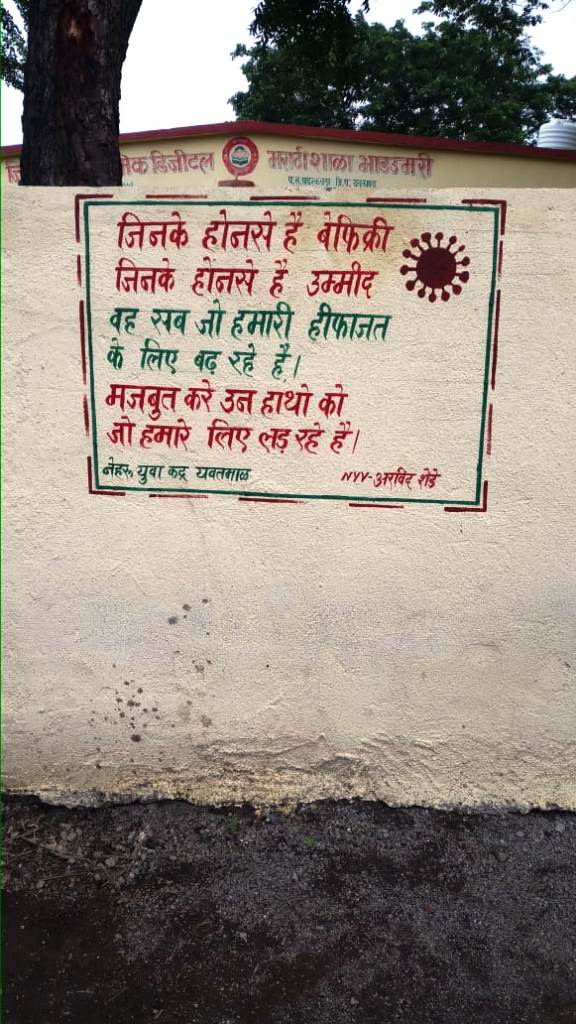 निक डिजीटल मराठी शाळा भांडमरी
जिनके होनसे हैं बेफिक्री
जिनके होनसे है उम्मीद
वह सब जो हमारी हीफाजत
के लिए बढ़ रहे है।
मजबुत करे उन हाथो को
जो हमारे लिए लड़ रहे है।
नेहरू युवा कद्र यवतमाळ
NYV-अरविंद शेडे